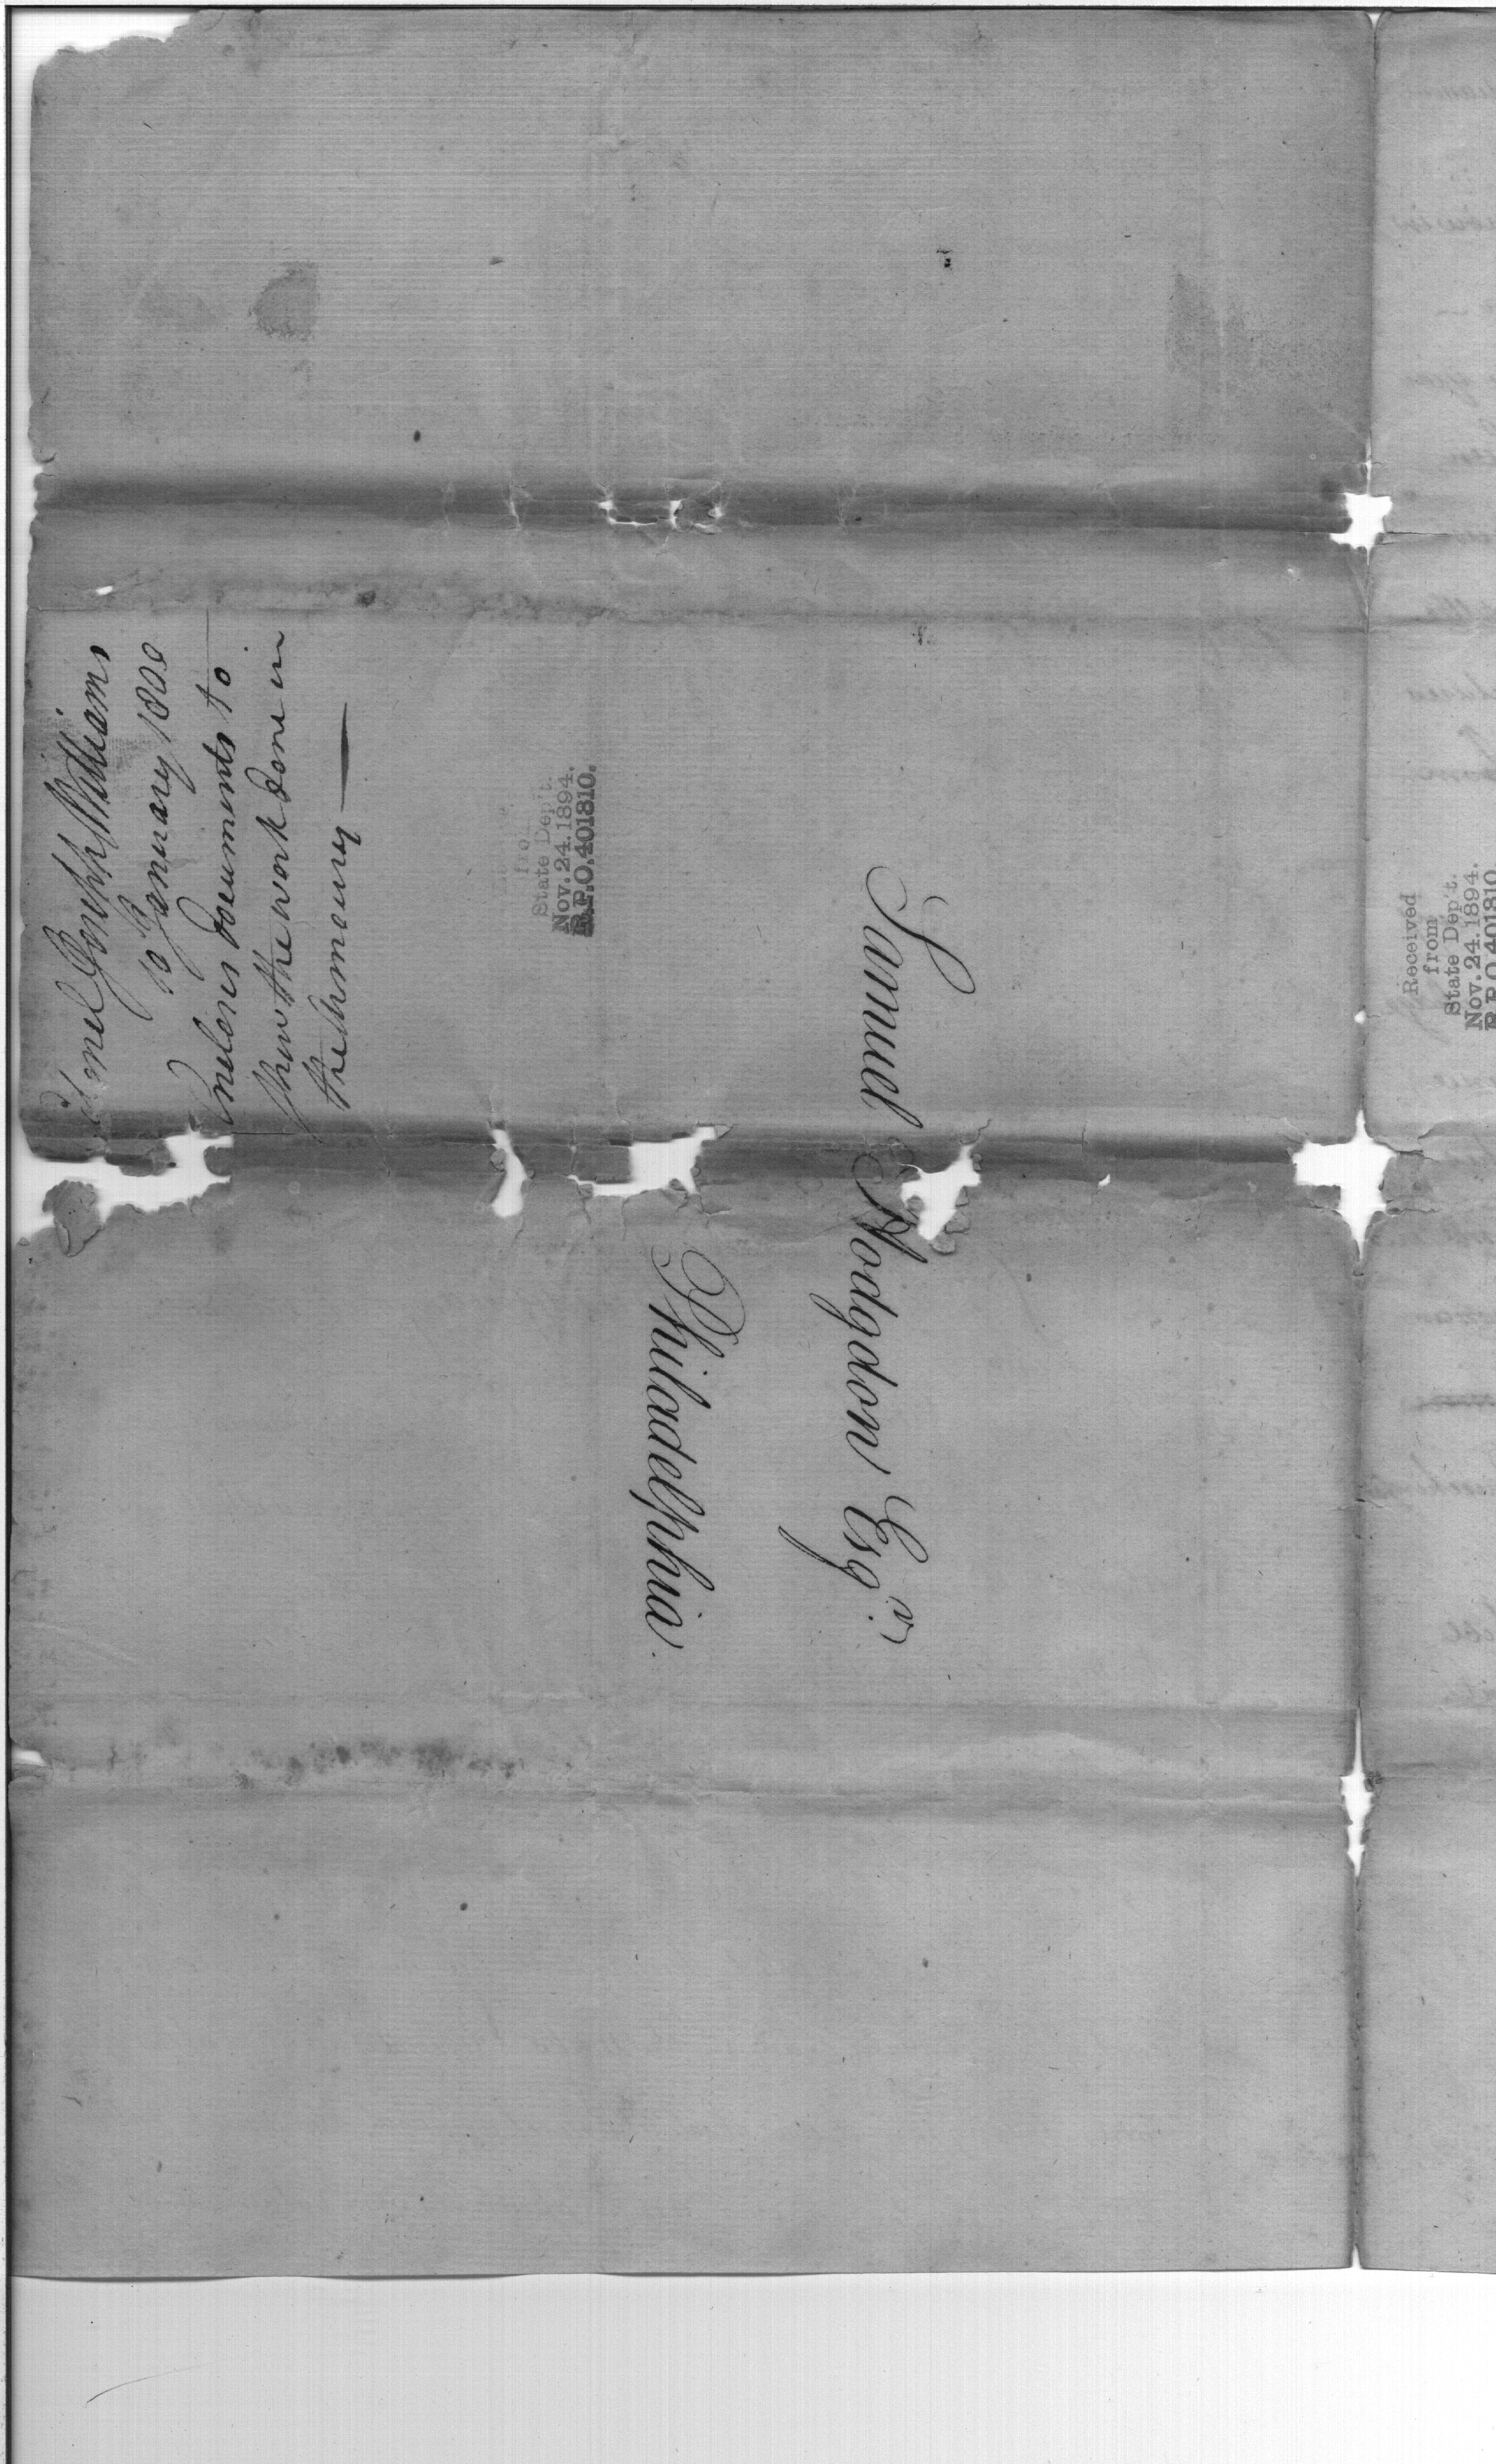 Colonel Joseph Williams
10 January 1800
Encloses documents to
shew the work done in
the Armoury —
State Dep't.
Nov. 24. 1894.
R.P.O. 401810.
Samuel Hodgdon Esqr.
Philadelphia.
Received
from
State Dep't.
Nov. 24. 1894.
R.P.O. 401810